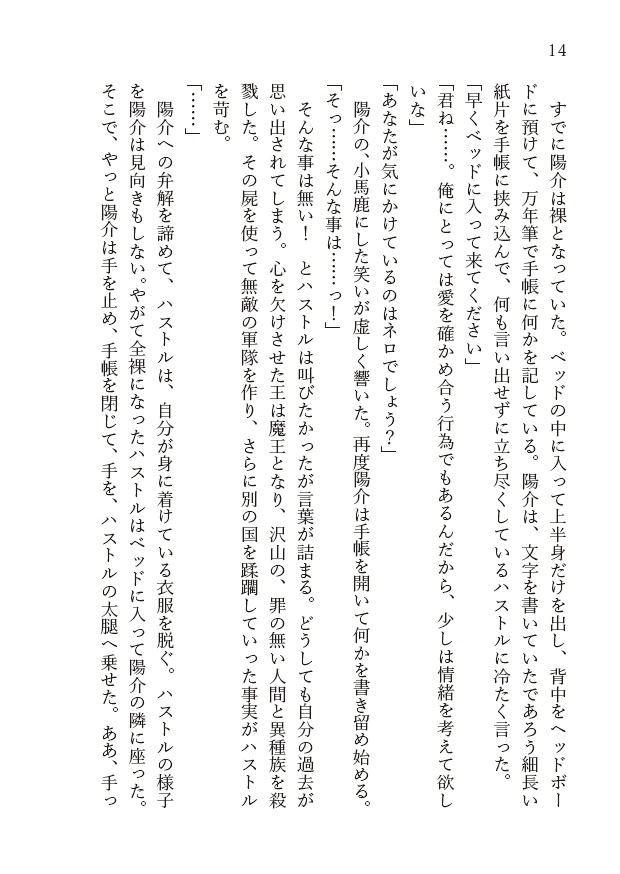 14
　すでに陽介は裸となっていた。ベッドの中に入って上半身だけを出し、背中をヘッドボー
ドに預けて、万年筆で手帳に何かを記している。陽介は、文字を書いていたであろう細長い
紙片を手帳に挟み込んで、何も言い出せずに立ち尽くしているハストルに冷たく言った。
「早くベッドに入って来てください」
「君ね……。俺にとっては愛を確かめ合う行為でもあるんだから、少しは情緒を考えて欲し
いな」
「あなたが気にかけているのはネロでしょう？」
　陽介の、小馬鹿にした笑いが虚しく響いた。再度陽介は手帳を開いて何かを書き留め始める。
「そっ……そんな事は……っ！」
　そんな事は無い！　とハストルは叫びたかったが言葉が詰まる。どうしても自分の過去が
思い出されてしまう。心を欠けさせた王は魔王となり、沢山の、罪の無い人間と異種族を殺
戮した。その屍を使って無敵の軍隊を作り、さらに別の国を蹂躙していった事実がハストル
を苛む。
「……」
　陽介への弁解を諦めて、ハストルは、自分が身に着けている衣服を脱ぐ。ハストルの様子
を陽介は見向きもしない。やがて全裸になったハストルはベッドに入って陽介の隣に座った。
そこで、やっと陽介は手を止め、手帳を閉じて、手を、ハストルの太腿へ乗せた。ああ、手っ